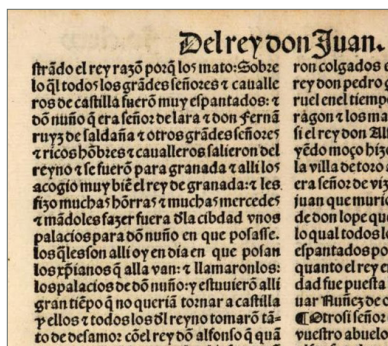 Del rey don Juan.
strãdo el rey razõ porq̃ los mato: Sobre
lo q̃l todos los grãdes señores ⁊ caualle
ros de castilla fuerõ muy espantados: ⁊
dõ nuño q̃ era señor de lara ⁊ don fernã
ruyz de saldaña ⁊ otros grãdes señores
⁊ ricos hõbres ⁊ caualleros salieron del
reyno ⁊ se fuerõ para granada ⁊ alli los
acogio muy biẽ el rey de granada: ⁊ les
fizo muchas hõrras ⁊ muchas mercedes
⁊ mãdoles fazer fuera d̃la cibdad vnos
palacios para dõ nuño en que posasse.
los q̃les son alli oy en dia en que posan
los xp̃ianos q̃ alla van: ⁊ llamaronlos:
los palacios de dõ nuño: y estuuierõ alli
gran tiẽpo q̃ no queriã tornar a castilla
y ellos ⁊ todos los d̃l reyno tomarõ tã-
to de desamor cõel rey dõ alfonso q̃ quã
ron colgados
rey don pedro
ruel enel tiemp
ragon ⁊ los ma
si el rey don Alf
yẽdo moço hizo
la villa de toro
era señor de viz
juan que murio
de don lope que
lo qual todos lo
espantados po
quanto el rey
dad fue puesta
uar Nuñez de o
¶Otrosi señor
vuestro abuelo